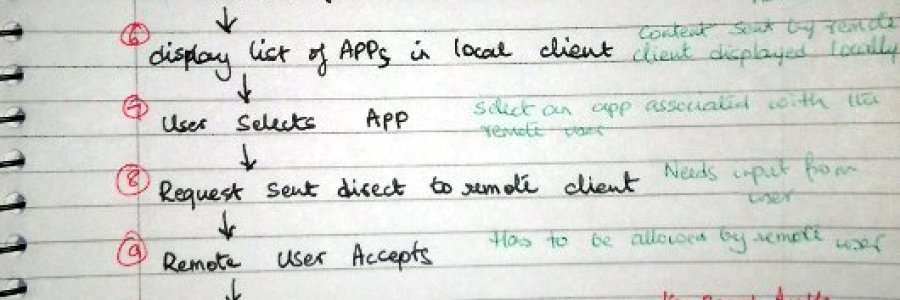 ⑥ display list of APPs in local client
Content sent by remote
client displayed locally
⑦ User Selects APP
Select an app associated with the
remote user
⑧ Request sent direct to remote client
Needs input from
user
⑨ Remote User Accepts
Has to be allowed by remote user